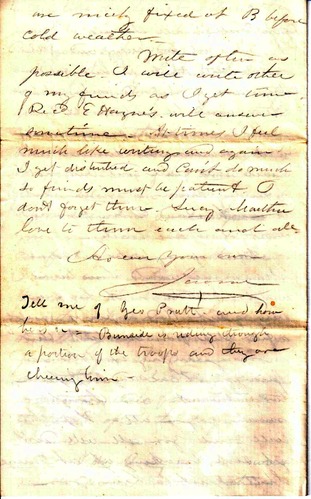 are nicely fixed at B before
cold weather.
Write often as
possible. I will write other
of my friends as I get time.
Rec'd E Hayne's. will answer
sometime. At times I feel
much like writing and again
I get disturbed and Can't do much
so friends must be patient I
don't forget them
love to them each and all.
As ever Your own

Tell me of Geo Pratt and how
he is. Burnside is riding through
a portion of the troops and they are
cheering him.